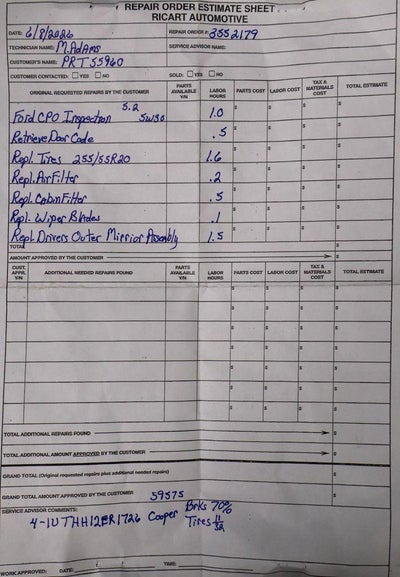 REPAIR ORDER ESTIMATE SHEET
RICART AUTOMOTIVE
DATE: 6/8/2026 REPAIR ORDER #: 3552179
TECHNICIAN NAME: M.Adams SERVICE ADVISOR NAME:
CUSTOMER'S NAME: PRT 55960
CUSTOMER CONTACTED: YES NO SOLD: YES NO
ORIGINAL REQUESTED REPAIRS BY THE CUSTOMER PARTS AVAILABLE Y/N LABOR HOURS PARTS COST LABOR COST TAX & MATERIALS COST TOTAL ESTIMATE
5.2
Ford CPO Inspection 5W50 1.0 $ $ $ $
Retrieve Door Code .5 $
Repl. Tires 255/55R20 1.6 $ $ $ $
Repl. Air Filter .2 $ $ $ $
Repl. Cabin Filter .5 $ $ $ $
Repl. Wiper Blades .1 $ $ $ $
Repl. Drivers Outer Mirrior Assembly 1.5 $ $ $ $
TOTAL $
AMOUNT APPROVED BY THE CUSTOMER $
CUST. APPR. Y/N ADDITIONAL NEEDED REPAIRS FOUND PARTS AVAILABLE Y/N LABOR HOURS PARTS COST LABOR COST TAX & MATERIALS COST TOTAL ESTIMATE
$ $ $ $
$ $ $ $
$ $ $ $
$ $ $ $
$ $ $ $
$ $ $ $
$ $ $ $
TOTAL ADDITIONAL REPAIRS FOUND $
TOTAL ADDITIONAL AMOUNT APPROVED BY THE CUSTOMER $
GRAND TOTAL (Original requested repairs plus additional needed repairs) $
GRAND TOTAL AMOUNT APPROVED BY THE CUSTOMER 59575 $
SERVICE ADVISOR COMMENTS: Brks 70%
4-1UTHH12ER1726 Cooper Tires 11/32
WORK APPROVED: DATE: TIME: